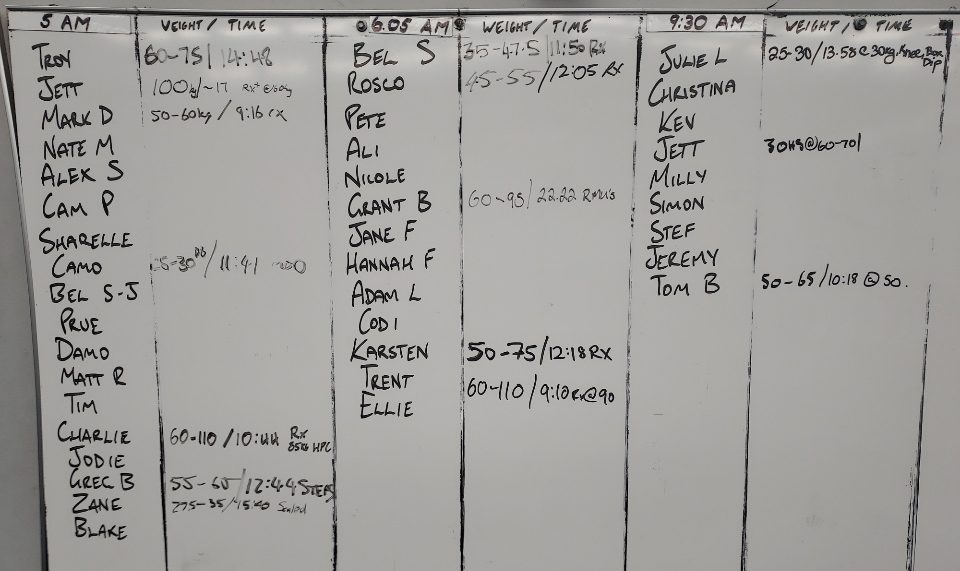 5 AM WEIGHT / TIME 6.05 AM WEIGHT / TIME 9:30 AM WEIGHT / TIME
TROY 60-75 / 14:48
JETT 100kg/~17
MARK D 50-60kg / 9:16 rx
NATE M
ALEX S
CAM P
SHARELLE
CAMO -30 / 11:41
BEL S-J
PRUE
DAMO
MATT R
TIM
CHARLIE 60-110 / 10:44 Rx 85kg HPC
JODIE
GREG B 55-65/12:44 STEPS
ZANE 27.5-35/ Scaled
BLAKE
BEL S 35-47.5 / 11:50 Rx
ROSCO 45-55/12:05 Rx
PETE
ALI
NICOLE
GRANT B 60-95/22.22
JANE F
HANNAH F
ADAM L
CODI
KARSTEN 50-75/12:18 RX
TRENT 60-110 / 9:10 Rx@90
ELLIE
JULIE L 25-30/13.58 @ 30kg. Knee, Box Dip
CHRISTINA
KEV
JETT @60-70/
MILLY
SIMON
STEF
JEREMY
TOM B 50-65/10:18 @ 50.